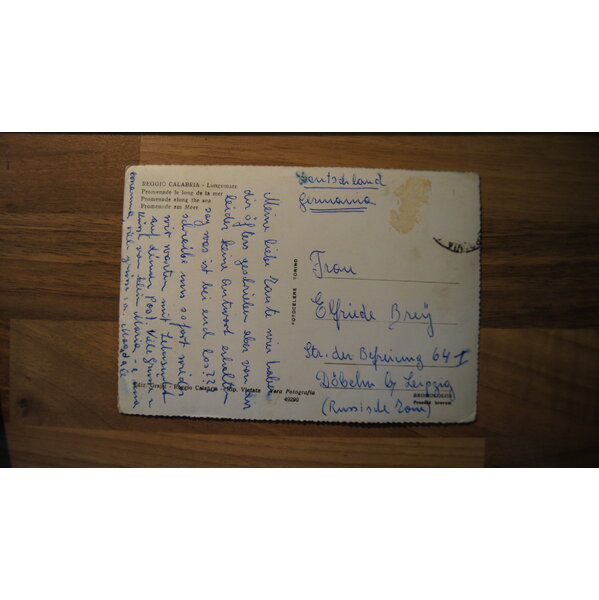 REGGIO CALABRIA - Lungomare
Promenade le long de la mer
Promenade along the sea
Promenade am Meer
Meine liebe Tante wir haben
dir öfters geschrieben aber von dir
leider keine Antwort erhalten
sag was ist bei euch los???
schreibe uns sofort wieder
wir warten mit Sehnsucht
auf deiner Post. Viele Grüsse u
Küsse von klein Maria - e
viele Grüsse a.
Deutschland
Germania
Frau
Elfriede Brey
Str. der Befreiung 64 I
Döbeln b/ Leipzig
(Russische Zone)
BROMOCOLOR
Vera Fotografia
49290
Reggio Calabria - Rip. Vietata
TORINO